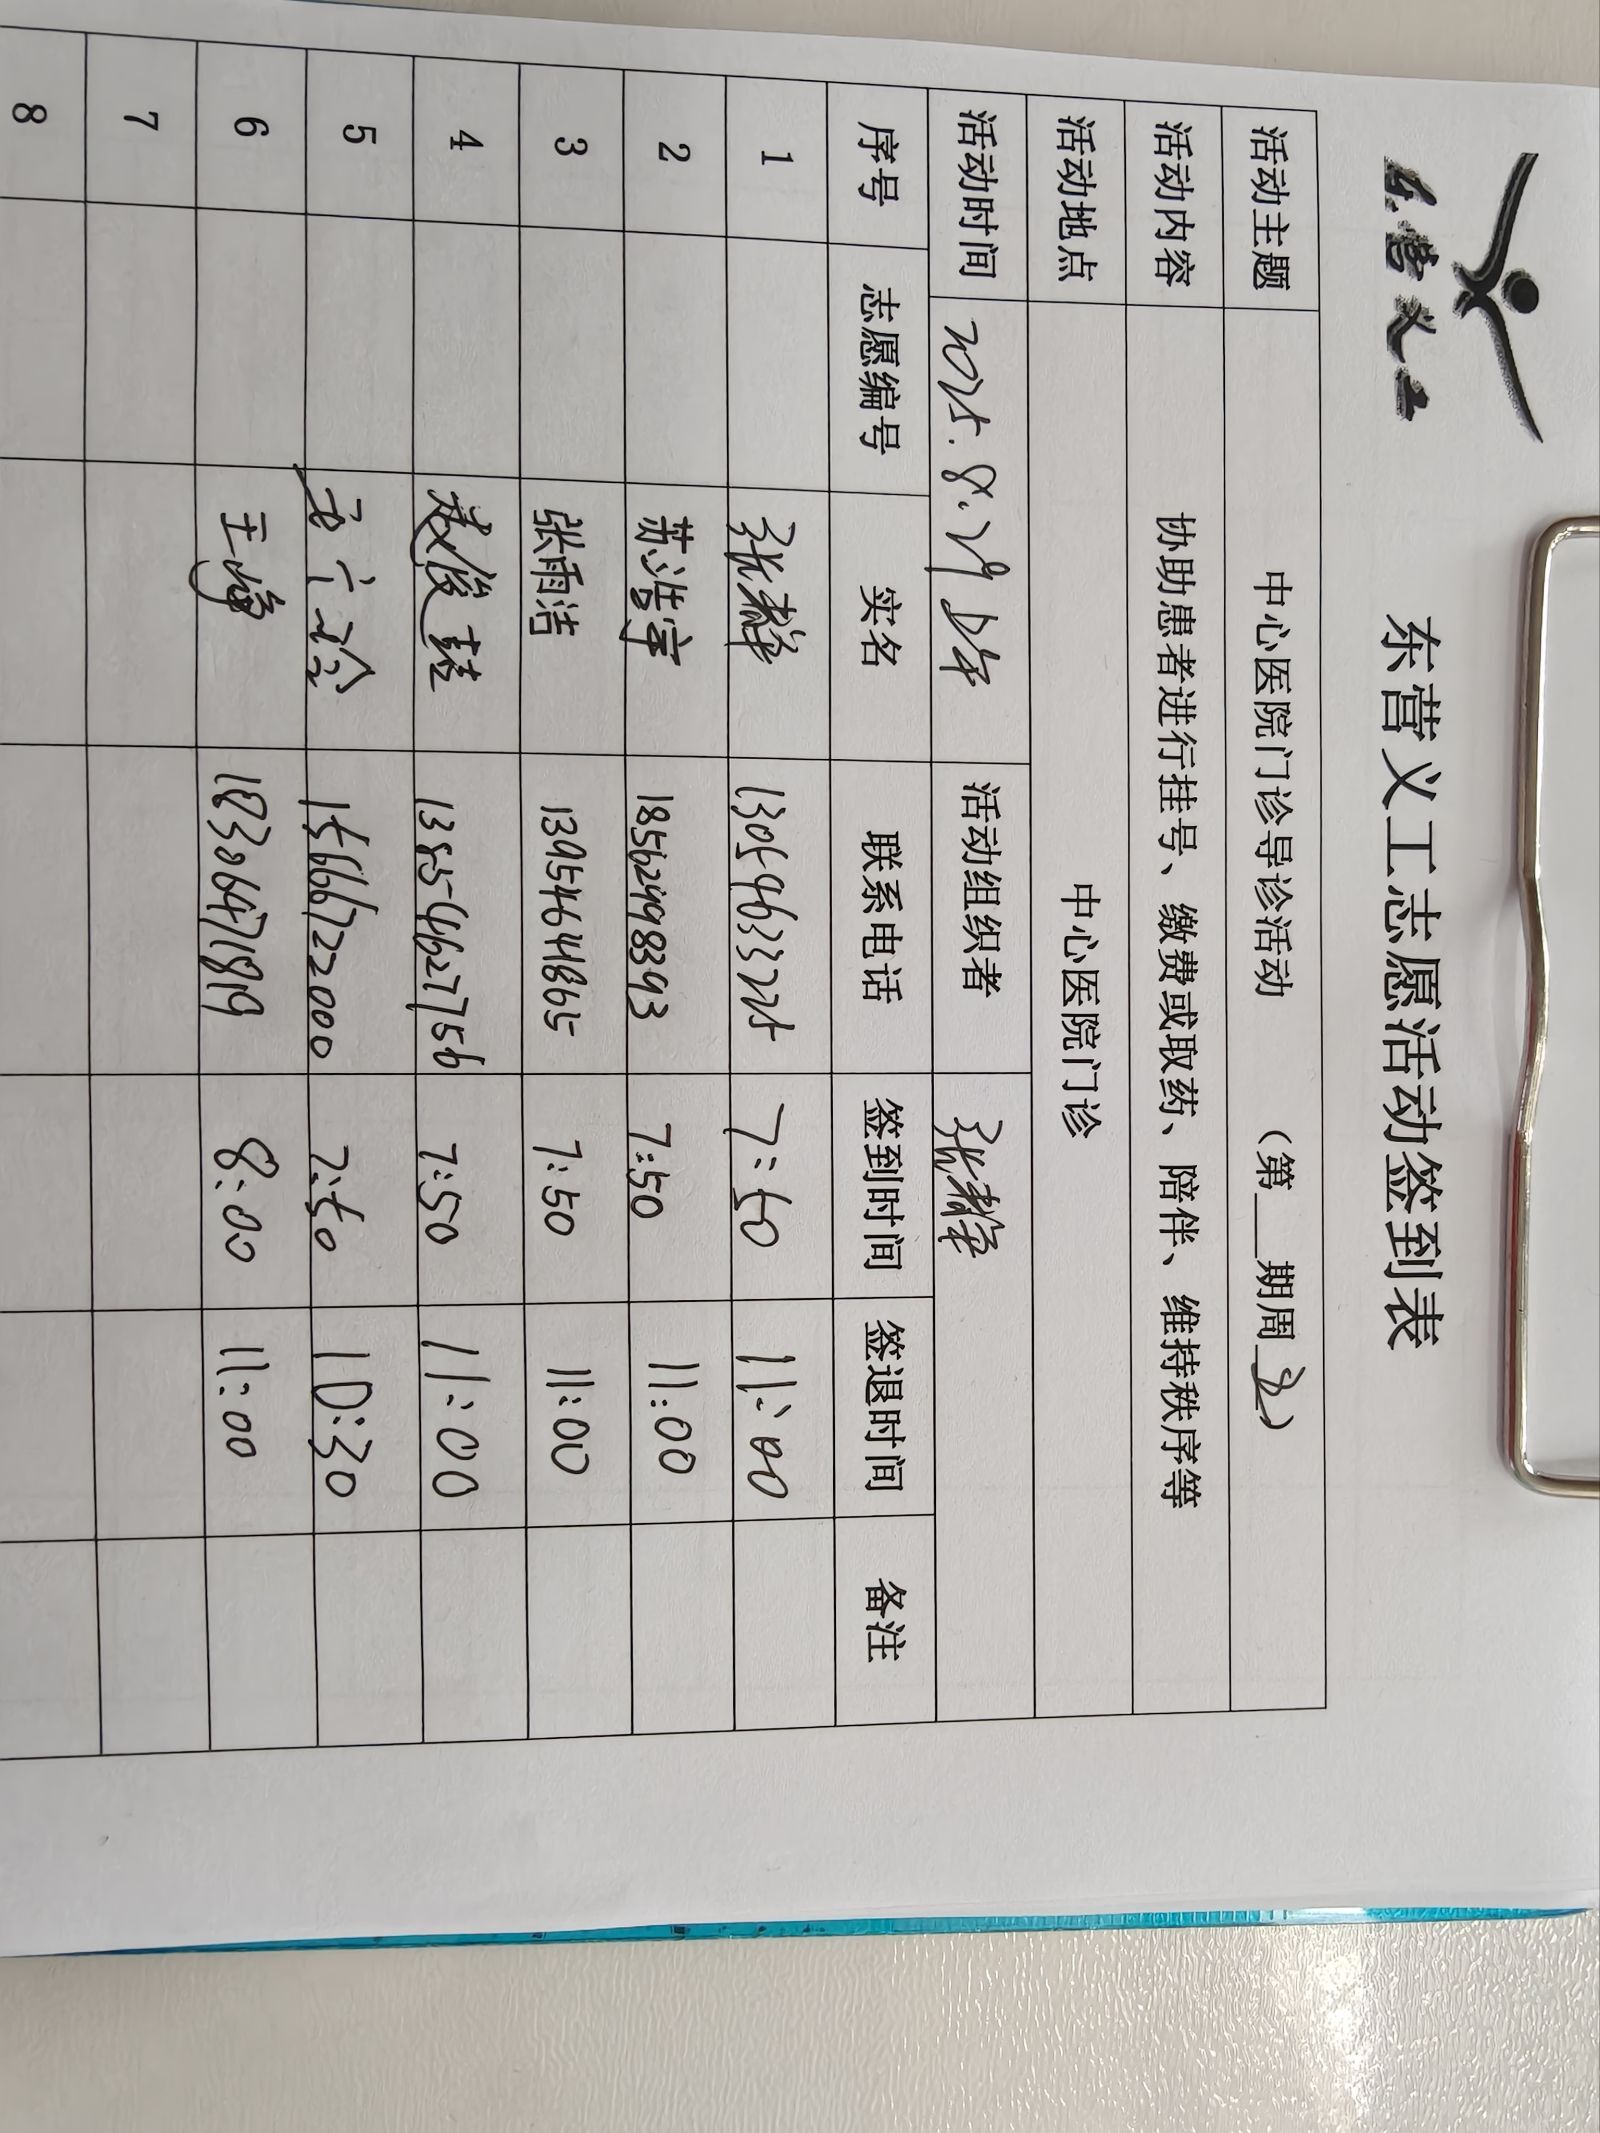 东营义工
东营义工志愿活动签到表
活动主题 中心医院门诊导诊活动 （第__期周五）
活动内容 协助患者进行挂号、缴费或取药、陪伴、维持秩序等
活动地点 中心医院门诊
活动时间 2025.8.29 上午 活动组织者 张
序号 志愿编号 实名 联系电话 签到时间 签退时间 备注
1 张 13054633225 7:50 11:00
2 苏浩宇 18562498393 7:50 11:00
3 张雨浩 13954644865 7:50 11:00
4 俊 13854627756 7:50 11:00
5 15666722000 7:50 10:30
6 王 18306471819 8:00 11:00
7
8